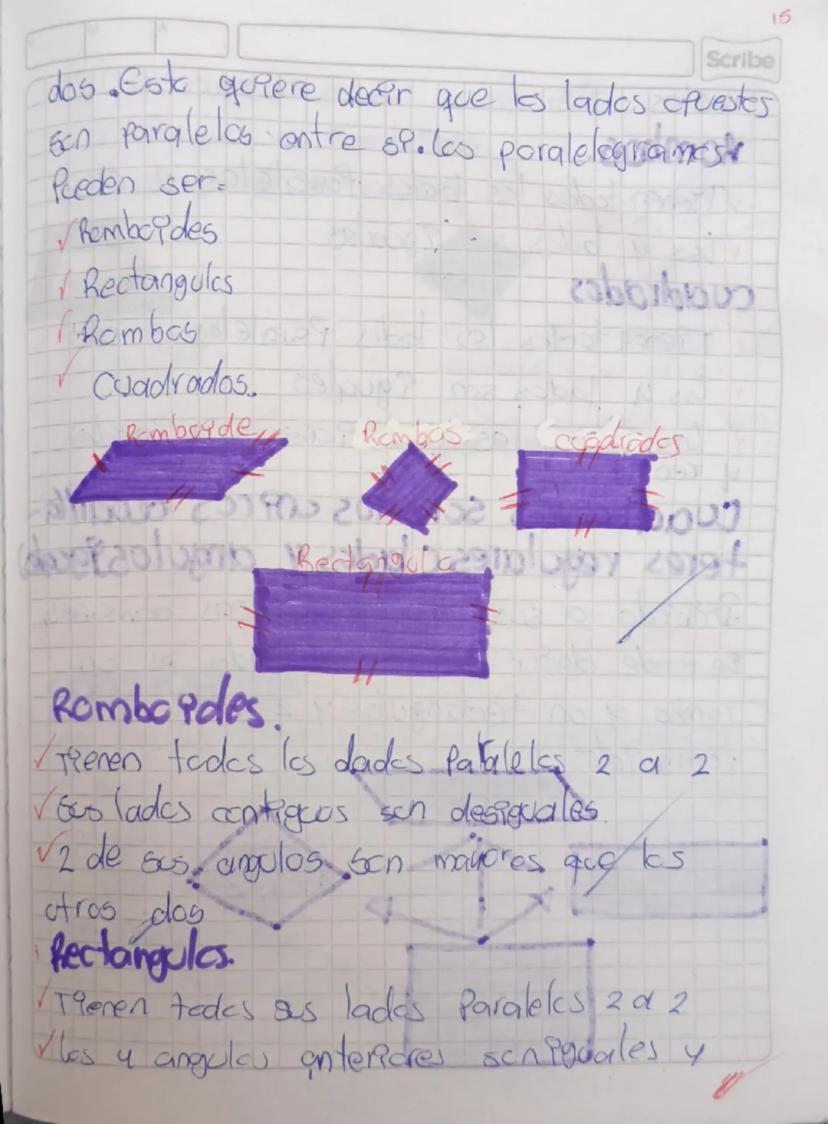 15
Scribe
dos. Esto quiere decir que los lados opuestos
son paralelos entre si. Los paralelogramos
Pueden ser:
✓ Romboides
✓ Rectangulos
✓ Rombos
✓ Cuadrados.
Romboide Rombos cuadrados
Rectangulo
Romboides.
✓ Tienen todos los dados Paralelos 2 a 2
✓ Sus lados contiguos son desiguales.
✓ 2 de sus angulos son mayores que los
otros dos
Rectangulos.
✓ Tienen todos sus lados Paralelos 2 a 2
✓ Los 4 angulos interiores son iguales y